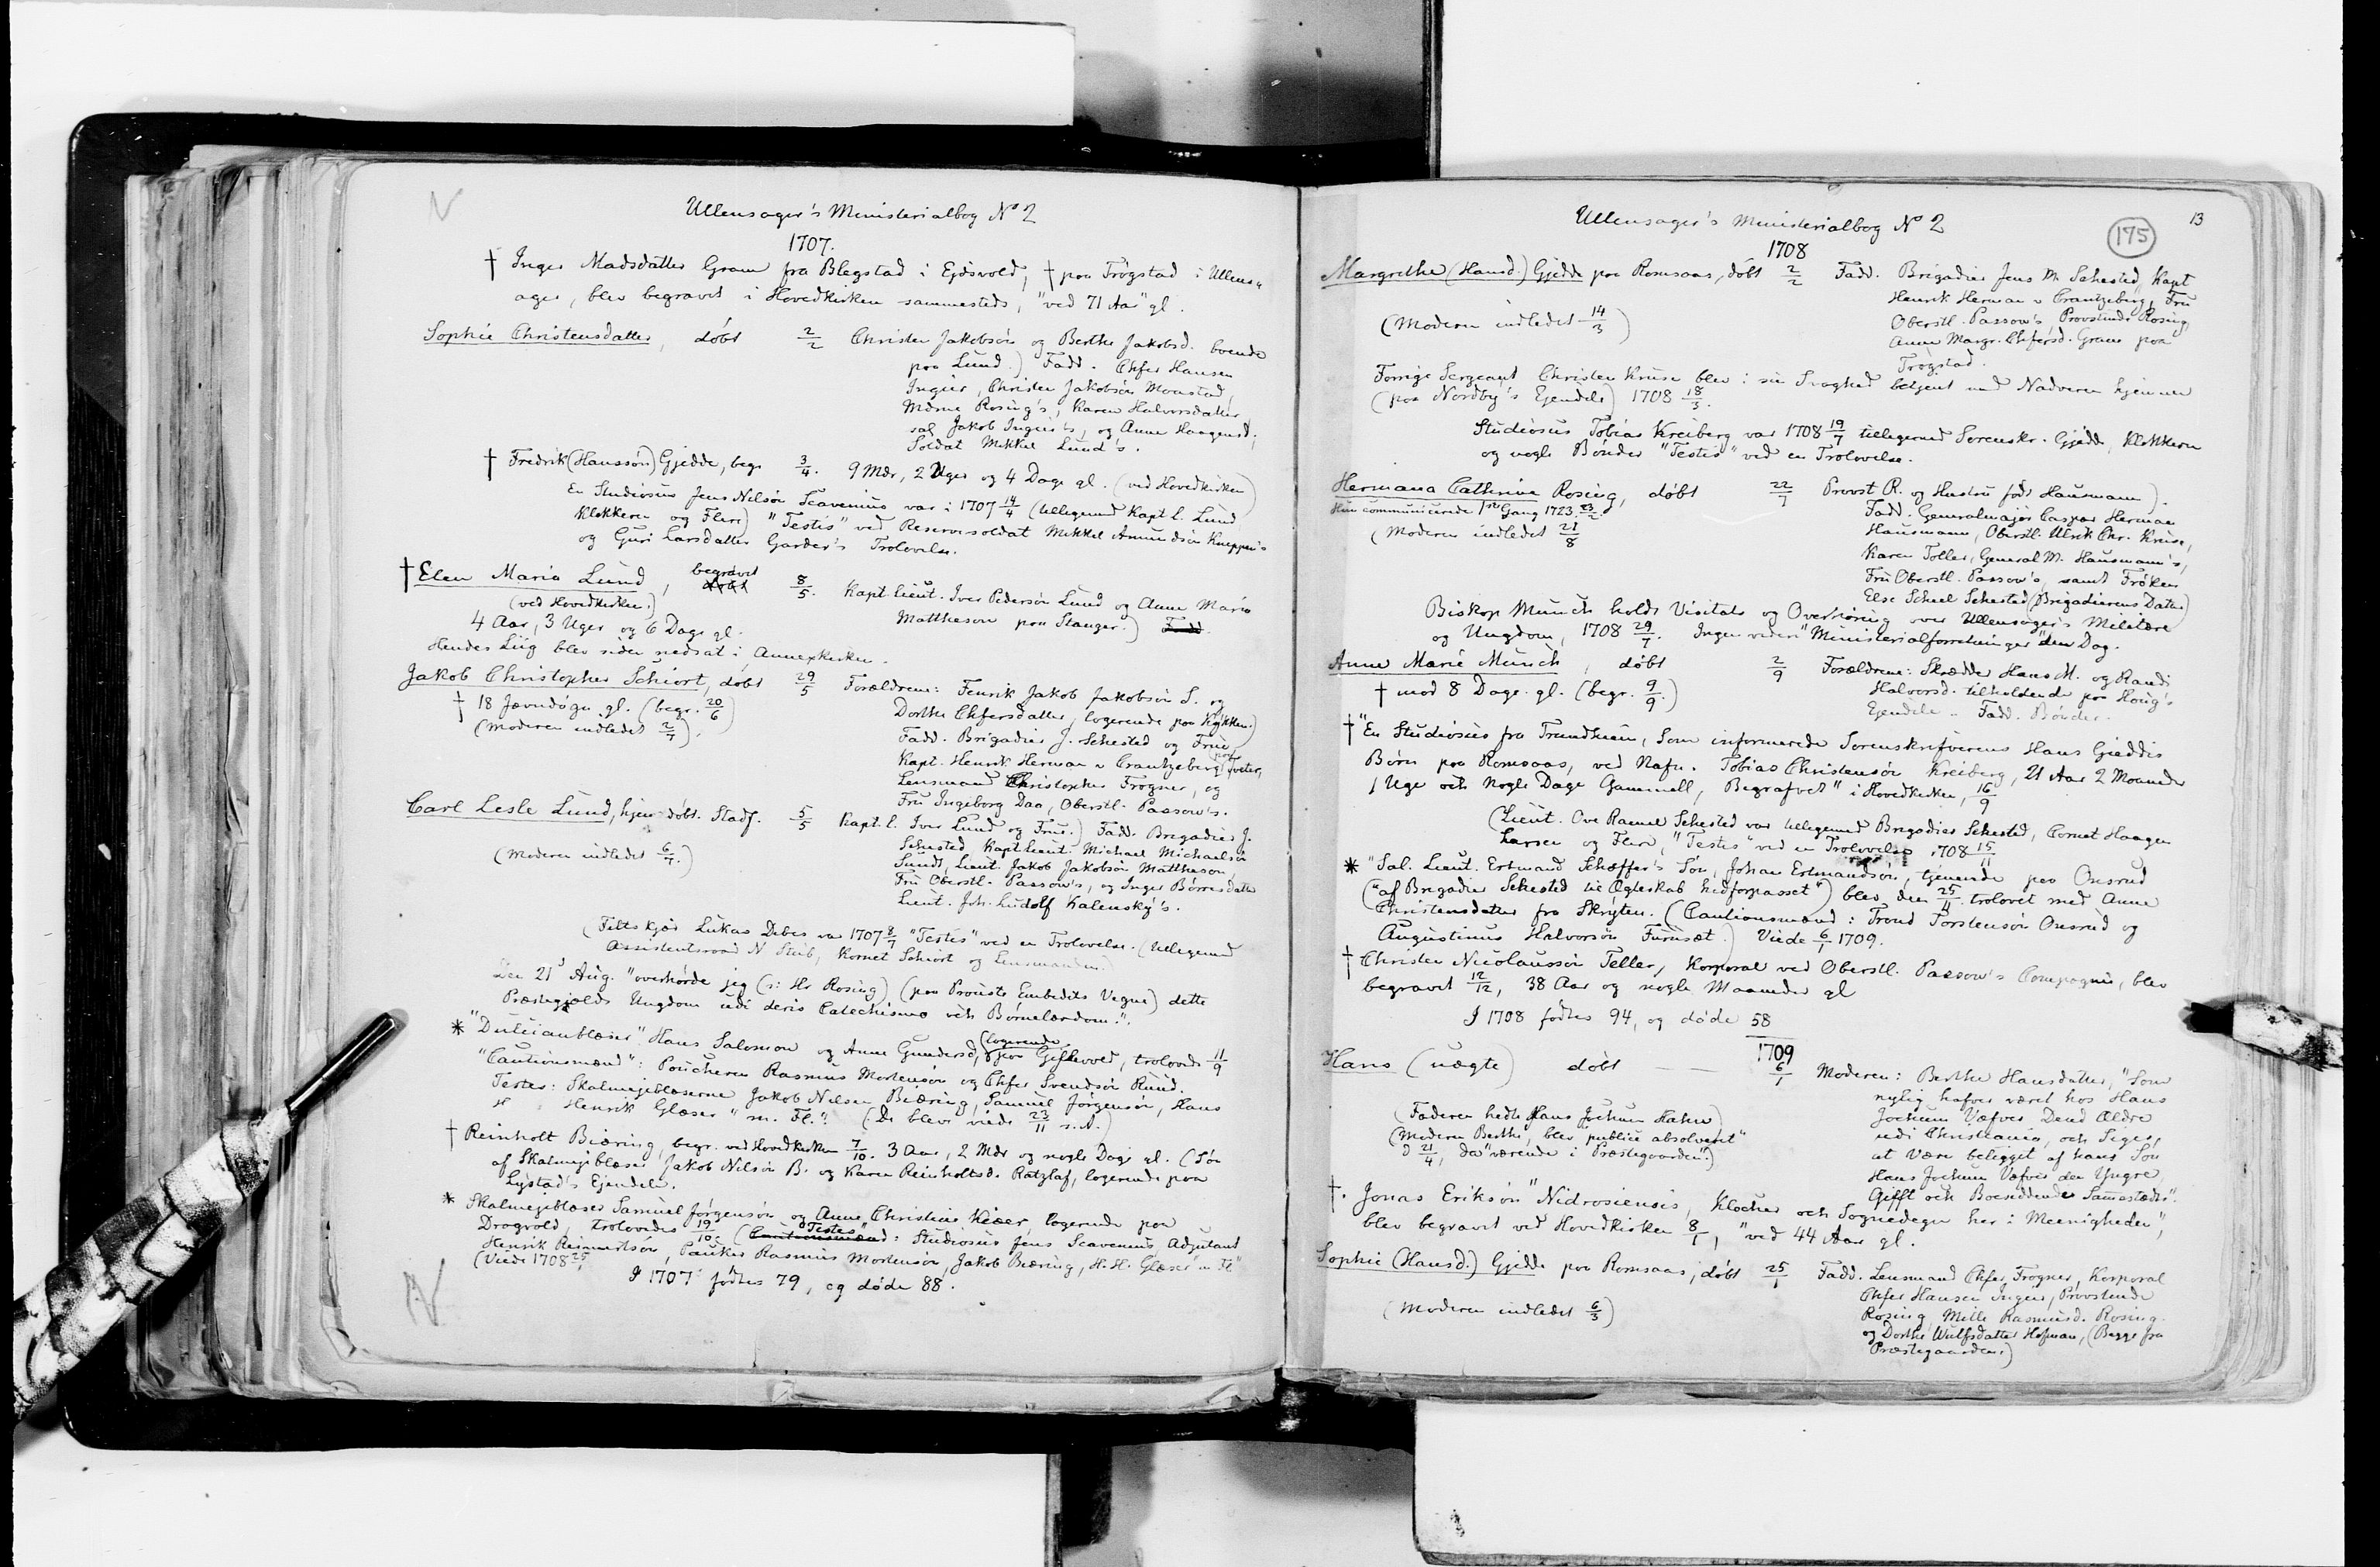 Ullensager's Ministerialbog No 2
1707.
† Inger Madsdatter Gram fra Blegstad i Ejdsvold, † paa Trögstad i Ullens-
ager, blev begravet i Hovedkirken sammesteds, "ved 71 Aar" gl.
Sophie Christensdatter, döbt 2/2 Christen Jakobsön og Berthe Jakobsd. boende
paa Lund.) Fadd. Chfer Hansen
Ingier, Christen Jakobsön Monstad,
Mdme Rosing's, Karen Halvorsdatter,
sal. Jakob Ingier's, og Anne Haagensd.,
Soldat Mikkel Lund's.
† Fredrik (Hanssön) Gjedde, begr. 3/4. 9 Mdr, 2 Uger og 4 Dage gl. (ved Hovedkirken)
En Studiosus Jens Nilsön Scavenius var i 1707 14/4 (tillegemed Kapt. l. Lund
Klokkeren og Flere) "Testis" ved Reservesoldat Mikkel Amundsön Kneppe's
og Guri Larsdatter Garder's Trolovelse.
† Elen Maria Lund, begravet döbt 8/5. Kapt. Lieut. Iver Pedersön Lund og Anne Maria
(ved Hovedkirken.) Mattheson paa Stanger.) Fadd.
4 Aar, 3 Uger og 6 Dage gl.
Hendes Liig blev siden nedsat i Annexkirken.
Jakob Christopher Schiort, döbt 29/5 Forældrene: Fenrik Jakob Jakobsön S. og
† 18 Jævndögn gl. (begr. 20/6) Dorthe Chfersdatter, logerende paa Kykken.)
(Moderen indledet 2/7). Fadd. Brigadier J. Sehested og Frue,
Kapt. Henrik Herman v Crantzeberg paa Tveter,
Lensmand Christopher Frogner, og
Fru Ingeborg Daa, Oberstl. Passow's.
Carl Lesle Lund, hjemdöbt. Stadf. 5/5 Kapt. l. Iver Lund og Frue.) Fadd. Brigadier J.
Sehested Kapt Lieut. Michael Michaelsön
(Moderen indledet 6/7.) Sundt, Lieut. Jakob Jakobsön Mattheson,
Fru Oberstl. Passow's, og Inger Börresdatter
Lieut. Joh. Ludolf Kalensky's.
(Feltskjær Lukas Debes var 1707 8/7 "Testis" ved en Trolovelse. (tillegemed
Assistentsraad N Stub, Kornet Schiort og Lensmanden.)
Den 21de Aug. "overhörde jeg (ɔ: Hr Rosing) (paa Prouste Embedets Vegne) dette
Præstegjælds Ungdom udi deris Catechismo och Börnelærdom.".
* "Dulcianblæser" Hans Salomon og Anne Gundersd, (logerende) paa Gislevold, trolovede 11/9
"Cautionsmænd": Poucheren Rasmus Mortensön og Chfer Svendsön Ruud.
Testes: Skalmejeblæserne Jakob Nilsen Biæring, Samuel Jörgensön, Hans
H " Henrik Glæser "m. Fl.". (De bleve viede 23/11 s. A.)
† Reinholt Biæring, begr. ved Hovedkirken 7/10. 3 Aar, 2 Mdr og nogle Dage gl. (Sön
af Skalmejeblæser Jakob Nilsön B. og Karen Reinholtsd. Ratzlaf, logerende paa
Lystad's Ejendele.
* Skalmejeblæser Samuel Jörgensön og Anne Christine Kiær, logerende paa
Dragvold, trolovedes 19/10. (Cautionsmænd "Testes": Studiosus Jens Scavenius, Adjutant
Henrik Reinertsön, Pauker Rasmus Mortensön, Jakob Biæring, H. H. Glæser "m Fl."
(Viede 1708 25/1
I 1707 födtes 79, og döde 88.
Ullensager's Ministerialbog No 2
175
13
1708
Margrethe (Hansd.) Gjedde paa Romsaas, döbt 2/2 Fadd. Brigadier Jens M. Sehested, Kapt
Henrik Herman v Crantzeberg, Fru
(Moderen indledet 14/3) Oberstl. Passow's Provstinde Rosing,
Anne Margr. Chfersd. Gram paa
Trögstad.
Forrige Sergeant Christen Kruse blev i sin Svaghed betjent med Nadveren hjemme
(paa Nordby's Ejendele) 1708 18/3.
Studiosus Tobias Kreiberg var 1708 19/7 tillegemed Sorenskr. Gjedde, Klokkeren
og nogle Bönder "Testis" ved en Trolovelse.
Hermana Cathrine Rosing, döbt 22/7 Provst R. og Hustru födt Hausmann).
Hun communicerede 1ste Gang 1723 23/2. Fadd. Generalmajor Caspar Herman
(Moderen indledet 21/8 Hausmann, Oberstl. Ulrik Chr. Kruse,
Karen Toller, General M. Hausmann's,
Fru Oberstl. Passow's, samt Fröken
Else Scheel Sehested (Brigadierens Datter)
Biskop Munch holdt Visitats og Overhöring over Ullensager's Militære
og Ungdom, 1708 29/7. Ingen videre "Ministerialforretninger" den Dag.
Anne Marie Munch, döbt 2/9 Forældrene: Skrædder Hans M. og Randi
† mod 8 Dage gl. (begr. 9/9.) Halvorsd. tilholdende paa Houg's
Ejendele. Fadd. Bönder.
† "En Studiosus fra Trundhiem, Som informerede Sorenskrifverens Hans Gieddis
Börn paa Romsaas, ved Nafn. Tobias Christensön Kreiberg, 21 Aar 2 Moaneder
1 Uge och Nogle Dage Gammell, Begrafvet" i Hovedkirken, 16/9
(Lieut. Ove Ramel Sehested var tillegemed Brigadier Sehested, Cornet Haagen
Larsen og Flere, "Testes" ved en Trolovelse 1708 15/11
* "Sal. Lieut. Ertmand Schæffer's Sön, Johan Ertmandsön, tjenende paa Onsrud
("af Brigadier Sehested til Ægteskab hidforpasset") blev den 25/11 trolovet med Anne
Christensdatter fra Skryten. (Cautionsmænd: Trond Torstensön Onsrud og
Augustinus Halvorsön Furuset.) Viede 6/1 1709.
† Christen Nicolaussön Teller, Korporal ved Oberstl. Passow's Compagnie, blev
begravet 12/12, 38 Aar og nogle Maaneder gl
I 1708 födtes 94, og döde 58
1709
Hans (uægte) döbt — — 6/1 Moderen: Berthe Hansdatter, "Som
nylig hafver været hos Hans
(Faderen hedte Hans Jochum Hahn) Jochum Væfver Dend Ældre
(Moderen Berthe, blev "publice absolveret" udi Christiania, och Siges,
D 21/4, da "værende i Præstegaarden".) at være belegget af hans Sön
Hans Jochum Væfver den Yngre,
Gifft och Boesiddende Samestædes".
†. Jonas Eriksön "Nidrosiensis, Klocker och Sognedegn her i Meenigheden",
blev begravet ved Hovedkirken 8/1, "ved 44 Aar gl.
Sophie (Hansd.) Gjedde paa Romsaas, döbt 25/1 Fadd. Lensmand Chfer Frogner, Korporal
Chfer Hansen Ingier, Provstinde
(Moderen indledet 6/3) Rosing, Mille Rasmusd. Rosing
og Dorthe Wulfsdatter Hofman, (Begge fra
Præstegaarden.)